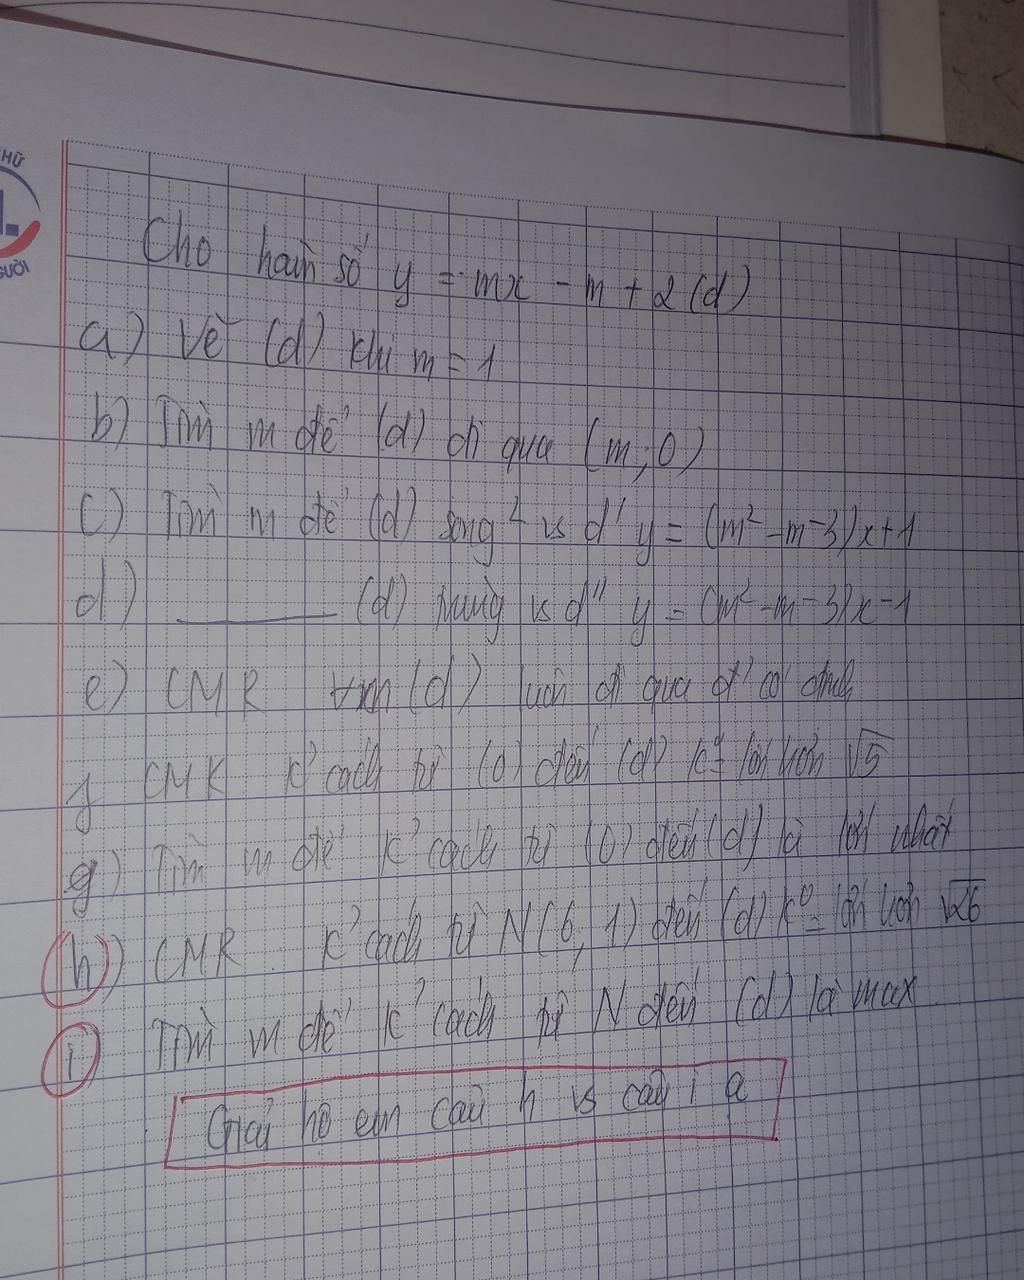 HỮ
L
GƯỜI
Cho hàm số y = mx - m + 2 (d)
a) Vẽ (d) khi m = 1
b) Tìm m để (d) đi qua (m; 0)
c) Tìm m để (d) song² vs d' y = (m² - m - 3)x + 1
d) ________ (d) trùng vs d'' y = (m² - m - 3)x - 1
e) CMR ∀m (d) luôn đi qua đ' cố định
f CMR k' cách từ (O) đến (d) k⁰ lớn hơn √5
g) Tìm m để k' cách từ (O) đến (d) là lớn nhất
h) CMR k' cách từ N(6, 1) đến (d) k⁰ lớn hơn √26
i) Tìm m để k' cách từ N đến (d) là max
Giải hộ em câu h vs câu i ạ